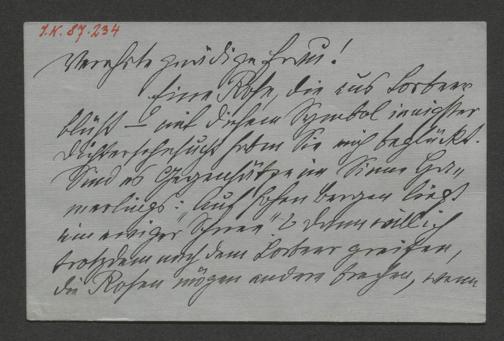 I.N. 87.234
Verehrte gnädige Frau!
Eine Rose, die aus Lorbeer
blüht – mit diesem Symbol innigster
Dichtersehnsucht haben Sie mich beglückt.
Sind es Gegensätze im Sinne Ha-
merlings: "Auf hohen Bergen liegt
ein ewiger Schnee"? Dann will ich
trotzdem nach dem Lorbeer greifen,
die Rosen mögen andere brechen, wenn